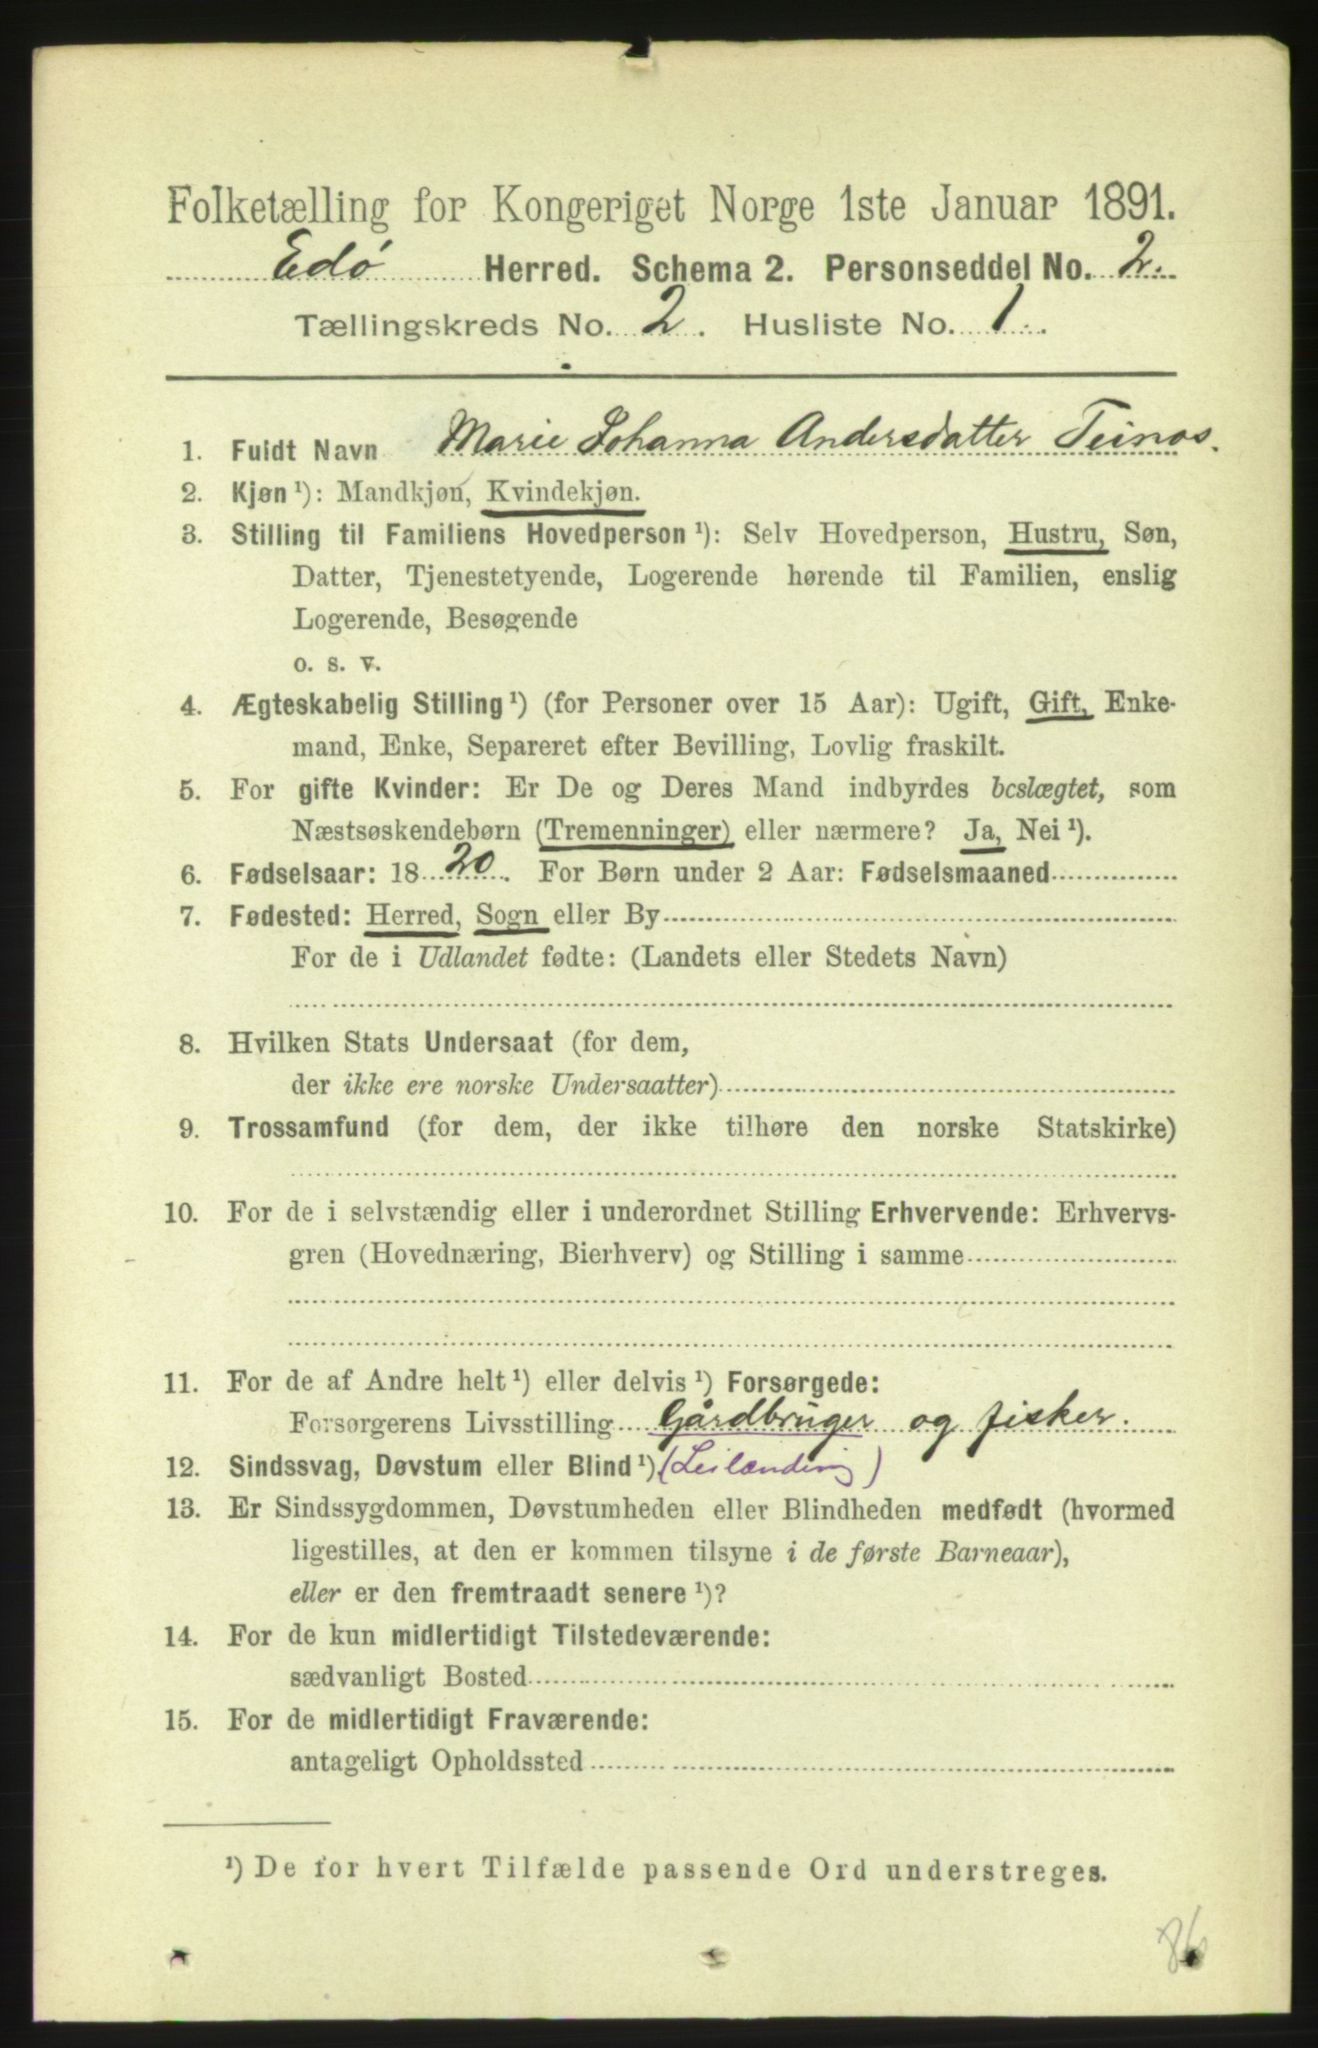 Folketælling for Kongeriget Norge 1ste Januar 1891.
Edø Herred. Schema 2. Personseddel No. 2.
Tællingskreds No. 2. Husliste No. 1.
1. Fuldt Navn Marie Johanna Andersdatter Teinos.
2. Kjøn ¹): Mandkjøn, Kvindekjøn.
3. Stilling til Familiens Hovedperson ¹): Selv Hovedperson, Hustru, Søn,
Datter, Tjenestetyende, Logerende hørende til Familien, enslig
Logerende, Besøgende
o. s. v.
4. Ægteskabelig Stilling ¹) (for Personer over 15 Aar): Ugift, Gift, Enke-
mand, Enke, Separeret efter Bevilling, Lovlig fraskilt.
5. For gifte Kvinder: Er De og Deres Mand indbyrdes beslægtet, som
Næstsøskendebørn (Tremenninger) eller nærmere? Ja, Nei ¹).
6. Fødselsaar: 18 20. For Børn under 2 Aar: Fødselsmaaned
7. Fødested: Herred, Sogn eller By
For de i Udlandet fødte: (Landets eller Stedets Navn)
8. Hvilken Stats Undersaat (for dem,
der ikke ere norske Undersaatter)
9. Trossamfund (for dem, der ikke tilhøre den norske Statskirke)
10. For de i selvstændig eller i underordnet Stilling Erhvervende: Erhvervs-
gren (Hovednæring, Bierhverv) og Stilling i samme
11. For de af Andre helt ¹) eller delvis ¹) Forsørgede:
Forsørgerens Livsstilling Gårdbruger og fisker.
12. Sindssvag, Døvstum eller Blind ¹). (Leilænding)
13. Er Sindssygdommen, Døvstumheden eller Blindheden medfødt (hvormed
ligestilles, at den er kommen tilsyne i de første Barneaar),
eller er den fremtraadt senere ¹)?
14. For de kun midlertidigt Tilstedeværende:
sædvanligt Bosted
15. For de midlertidigt Fraværende:
antageligt Opholdssted
¹) De for hvert Tilfælde passende Ord understreges.
86